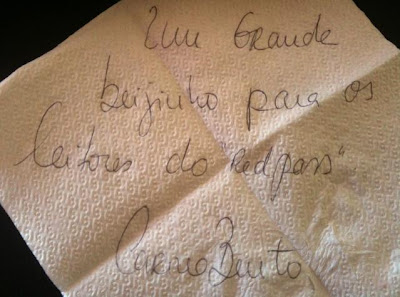 Um Grande
beijinho para os
leitores do "Redpass"
Carmo Bento